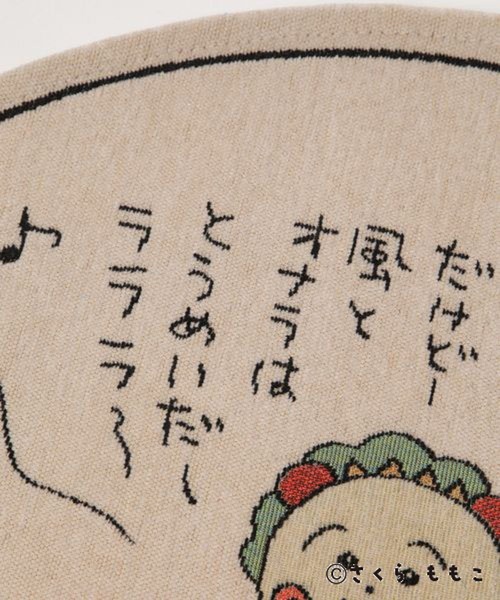 だけどー
風と
オナラは
とうめいだー
ラララ〜♪
©さくらももこ